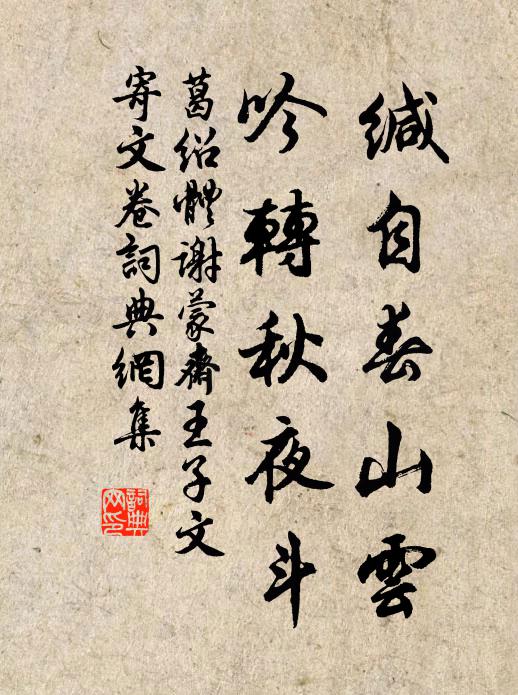 緘自春山雲
吟轉秋夜斗
葛紹體謝蒙齋王子文
寄文卷詞典網集
詞典
网印